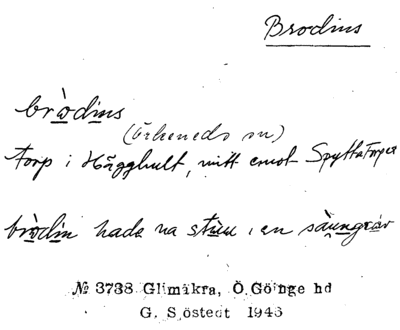 Brodins
bròdins
(Örkeneds sn)
torp i Hägghult, mitt emot Spyttatorpet
bròdin hade na stuu i en
№ 3738 Glimåkra, Ö Göinge hd
G. Sjöstedt 1943